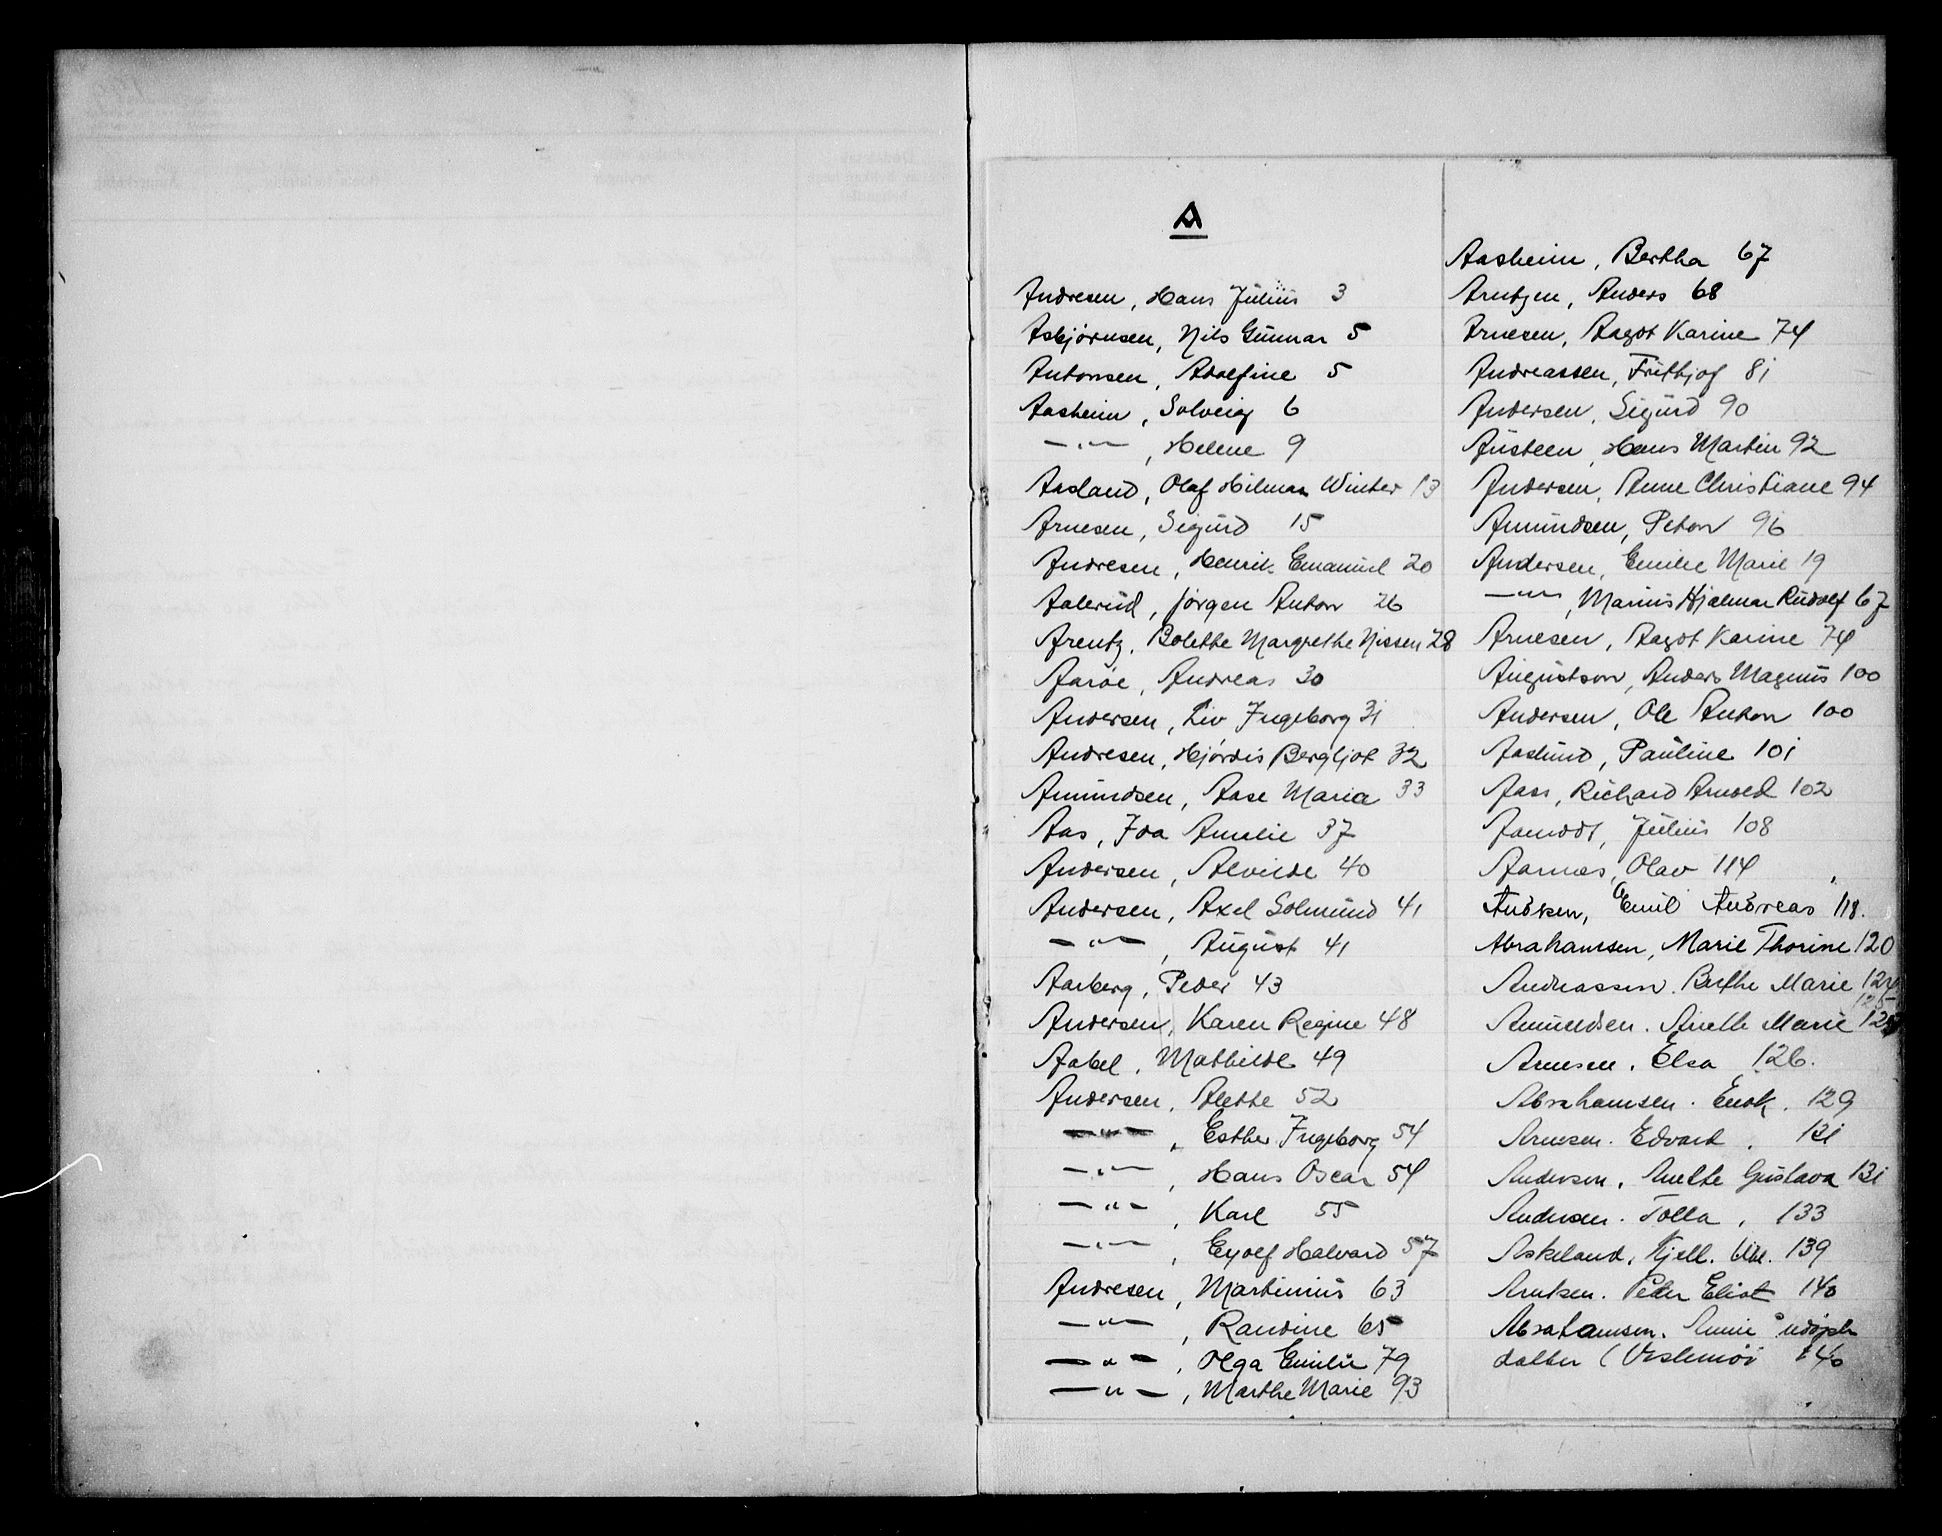 A
Andresen, Hans Julius 3
Asbjørnsen, Nils Gunnar 5
Antonsen, Adolfine 5
Aasheim, Solveig 6
—"—, Helene 9
Aasland, Olaf Hilmar Winter 13
Arnesen, Sigurd 15
Andresen, Henrik Emanuel 20
Aalerud, Jørgen Anton 26
Arentz, Bolette Margrethe Nissen 28
Aarøe, Andreas 30
Andersen, Liv Ingeborg 31
Andresen, Hjørdis Bergljot 32
Amundsen, Aase Maria 33
Aas, Ida Amalie 37
Andersen, Alvilde 40
Andersen, Axel Solmund 41
—"—, August 41
Aarberg, Peder 43
Andersen, Karen Regine 48
Aabel, Mathilde 49
Andersen, Alette 52
—"—, Esther Ingeborg 54
—"—, Hans Oscar 54
—"—, Karl 55
—"—, Eyolf Halvard 57
Andresen, Martinius 63
—"—, Randine 65
—"—, Olga Emilie 79
—"—, Marthe Marie 93
Aasheim, Bertha 67
Arntzen, Anders 68
Arnesen, Aagot Karine 74
Andreassen, Frithjof 81
Andersen, Sigurd 90
Austeen, Hans Martin 92
Andersen, Anne Christiane 94
Amundsen, Petter 96
Andersen, Emilie Marie 19
—"—, Marius Hjalmar Rudolf 67
Arnesen, Aagot Karine 74
Augustson, Anders Magnus 100
Andersen, Ole Anton 100
Aaslund, Pauline 101
Aass, Richard Arnold 102
Aamodt, Julius 108
Aarnæs, Olav 114
Emil Andreas 118.
Abrahamsen, Marie Thorine 120
Andreassen. Berthe Marie 124
125
Amundsen. Anette Marie
Arnesen. Elsa 126.
Abrahamsen. Enok. 129
Arnesen. Edvard. 131
Andersen. Anette Gustava 131
Andersen. Tolla. 133
Askeland. Kjell. 139
Arntsen. Peder Eliot 140
Abrahamsen. Annie
datter (Veslemøi 140